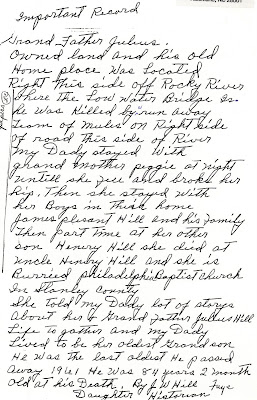 Important Record
Grand Father Julius.
Owned land and his old
Home place was Located
Right this side off Rocky River
Where the Low Water Bridge is
he was Killed by "run away
Team of Mules" on Right side
of road this side of River
My Dady stayed with
grand mother peggie at night
untill she fell and broke her
hip. Then she stayed with
her Boys in their home
James plesant Hill and his family
Then part time at her other
son Henery Hill she died at
uncle Henery Hill and she is
Burried philadelphia Baptist Church
In Stanley county
She told my Daddy lot of storys
About her & Grand Father Julius Hill
Life to gather and my Dady
Lived to be her oldest Grandson
He was the last oldest He passed
away 1961 He was 84 years 2 month
old at his Death. By J W Hill Faye
Daughter Historian